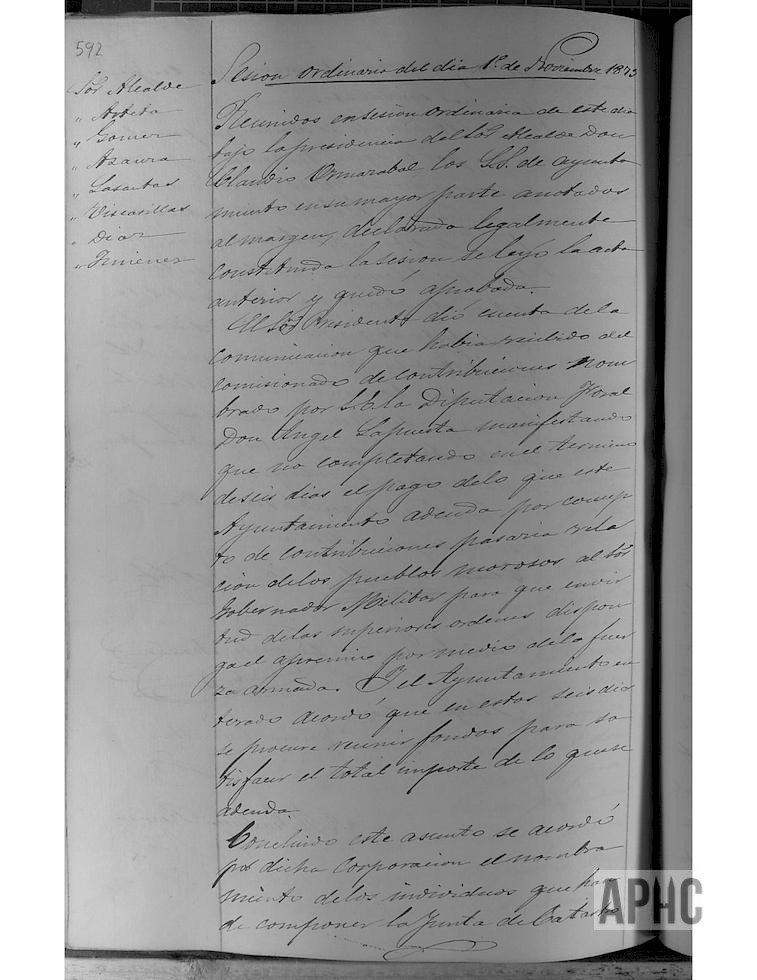 592
Sor Alcalde
" Arteta
" Gomez
" Azaura
" Lasantas
" Viscasillas
" Diaz
" Jimenez
Sesion ordinaria del dia 1º de Noviembre 1873
Reunidos en sesion ordinaria de este dia
bajo la presidencia del Sor Alcalde Don
Claudio Ormazabal los S.S. de ayunta
miento en su mayor parte anotados
al margen, declarada legalmente
constituida la sesion se leyó la acta
anterior y quedó aprobada.
El Sor Presidente dió cuenta de la
comunicacion que habia recibido del
comisionado de contribuciones nom
brado por S.E. la Diputacion Foral
Don Angel Lapuesta manifestando
que no completando en el termino
de seis dias el pago de lo que este
Ayuntamiento adeuda por concep
to de contribuciones pasaria rela
cion de los pueblos morosos al Sor
Gobernador Militar para que en vir
tud de las superiores ordenes dispon
ga el apremio por medio de la fuer
za armada. Y el Ayuntamiento en
terado acordó que en estos seis dias
se procure reunir fondos para sa
tisfacer el total importe de lo que se
adeuda.
Concluido este asunto se acordó
por dicha Corporacion el nombra
miento de los individuos que han
de componer la Junta de Catastro
APHC